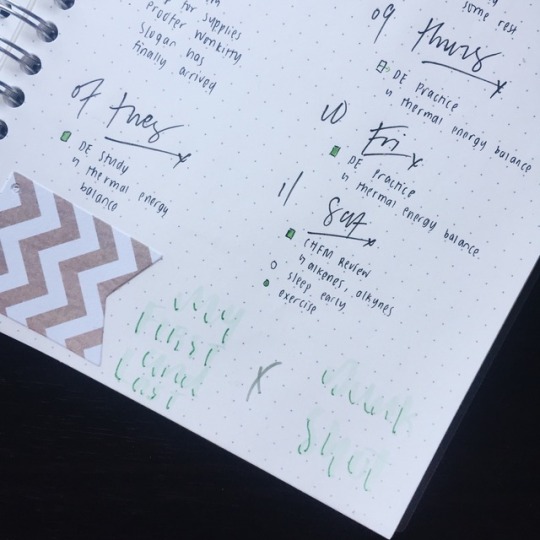 for supplies
proofer workitty
slogan has
finally arrived
07 tues
DE study
↳ thermal energy
balance
some rest
09 thurs
DE Practice
↳ thermal energy balance
10 Fri
DE Practice
↳ thermal energy balance
11 Sat
CHEM REVIEW
↳ alkenes, alkynes
sleep early
exercise
My
First
and
Last
X
Dunk
Shot